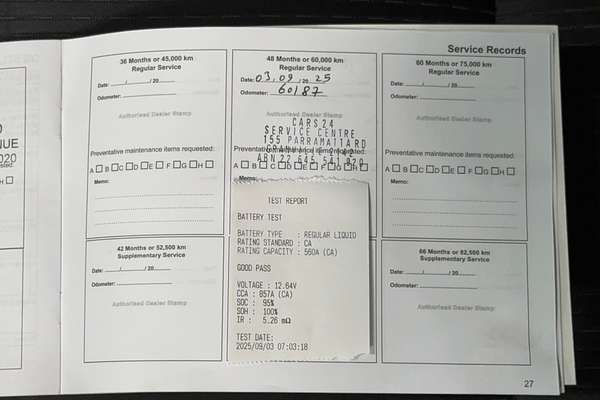 Service Records
36 Months or 45,000 km
Regular Service
Date: / /20
Odometer:
Authorised Dealer Stamp
Preventative maintenance items requested:
A B C D E F G H
Memo:
42 Months or 52,500 km
Supplementary Service
Date: / /20
Odometer:
Authorised Dealer Stamp
48 Months or 60,000 km
Regular Service
Date: 03/09/2025
Odometer: 60187
Authorised Dealer Stamp
CARS24
SERVICE CENTRE
155 PARRAMATTA RD
Preventative maintenance items requested:
ABN 22 645 541 920
A B C D E F G H
Memo:
TEST REPORT
BATTERY TEST
BATTERY TYPE : REGULAR LIQUID
RATING STANDARD : CA
RATING CAPACITY : 560A (CA)
GOOD PASS
VOLTAGE : 12.64V
CCA : 857A (CA)
SOC : 95%
SOH : 100%
IR : 5.26 mΩ
TEST DATE:
2025/09/03 07:03:18
60 Months or 75,000 km
Regular Service
Date: / /20
Odometer:
Authorised Dealer Stamp
Preventative maintenance items requested:
A B C D E F G H
Memo:
66 Months or 82,500 km
Supplementary Service
Date: / /20
Odometer:
Authorised Dealer Stamp
27
NUE
020